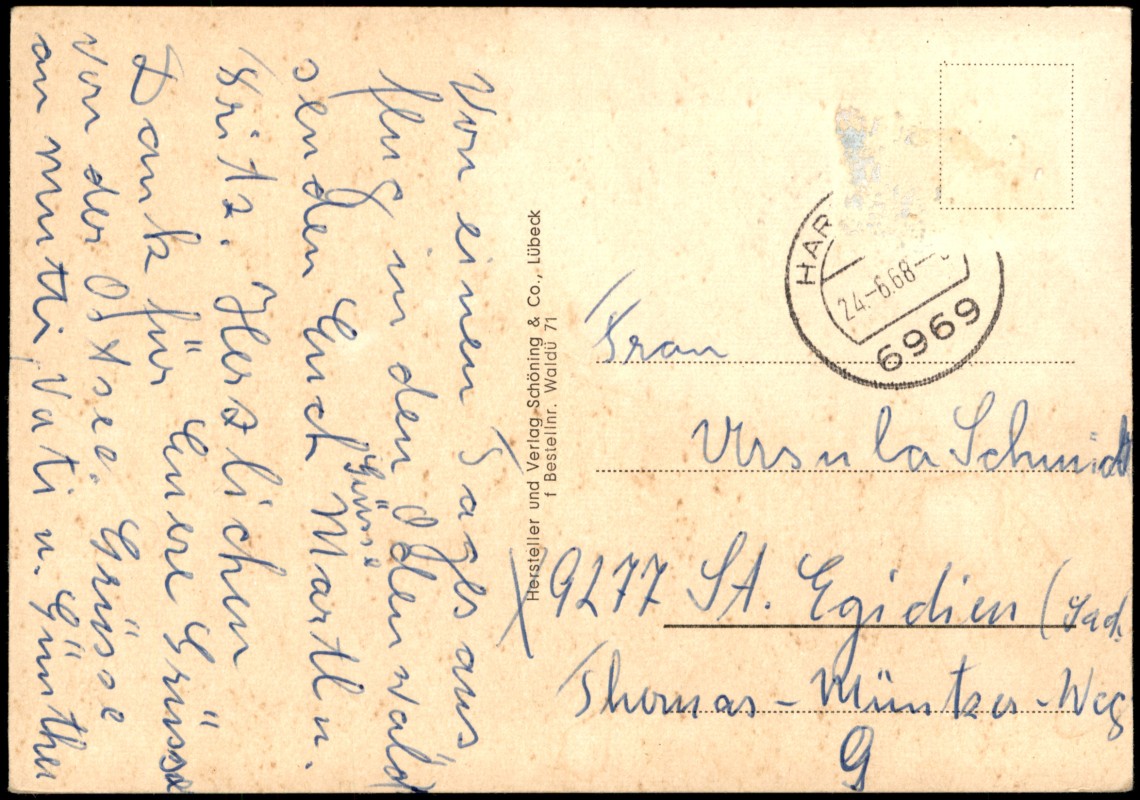 Von einen Tagesaus
flug in den Odenwald
senden Euch Grüsse Martl u.
Fritz. Herzlichen
Dank für Euere Grüsse
von der Ostsee. Grüsse
an Mutti, Vati u. Günther
Hersteller und Verlag Schöning & Co., Lübeck
f Bestellnr. Waldü 71
HAR
24.-6.68-
6969
Frau
Ursula Schmidt
9277 St. Egidien (Sach.
Thomas-Müntzer-Weg
9